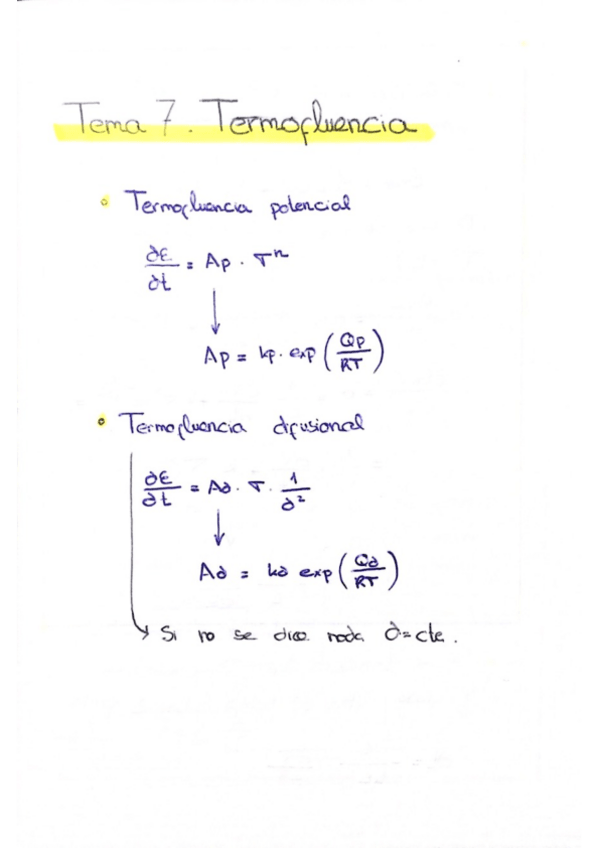 Tema 7. Termofluencia
• Termofluencia potencial
∂ε/∂t = Ap · σⁿ
↓
Ap = kp · exp (Qp/RT)
• Termofluencia difusional
∂ε/∂t = Ad · σ · 1/d²
↓
Ad = kd exp (Qd/RT)
↳ Si no se dice nada d=cte.